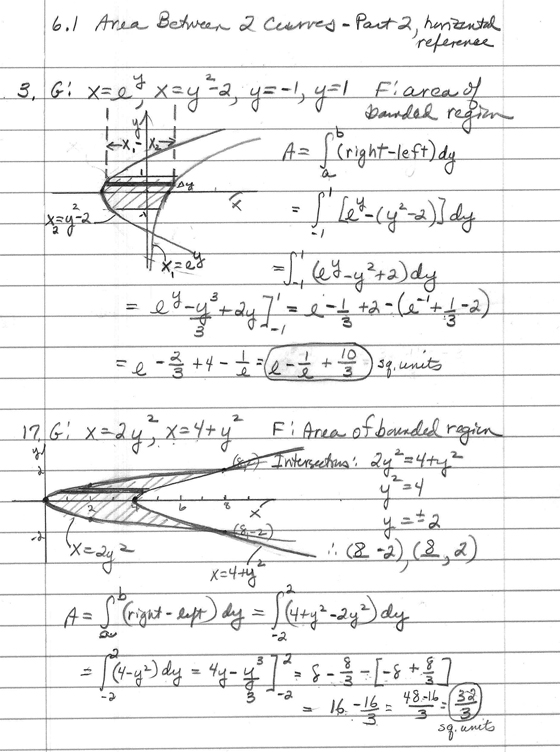 6.1 Area Between 2 Curves - Part 2, horizontal
reference
3. G: x=e^y, x=y²-2, y=-1, y=1 F: area of
bounded region
y
←x₁ - x₂→
A = ∫_a^b (right-left) dy
1
Δy
x
-1
= ∫_{-1}^1 [e^y-(y²-2)] dy
x₂=y²-2
x₁=e^y
= ∫_{-1}^1 (e^y-y²+2) dy
= e^y - y³/3 + 2y ]_{-1}^1 = e - 1/3 + 2 - (e^{-1} + 1/3 - 2)
= e - 2/3 + 4 - 1/e = e - 1/e + 10/3 sq. units
17. G: x=2y², x=4+y² F: Area of bounded region
y
2
(8,2)
Intersections: 2y²=4+y²
y²=4
2 4 6 8 x
y=±2
-2
(8,-2)
∴ (8 -2), (8, 2)
x=2y²
x=4+y²
A = ∫_a^b (right-left) dy = ∫_{-2}^2 (4+y²-2y²) dy
= ∫_{-2}^2 (4-y²) dy = 4y - y³/3 ]_{-2}^2 = 8 - 8/3 - [-8 + 8/3]
= 16 - 16/3 = 48-16/3 = 32/3
sq. units